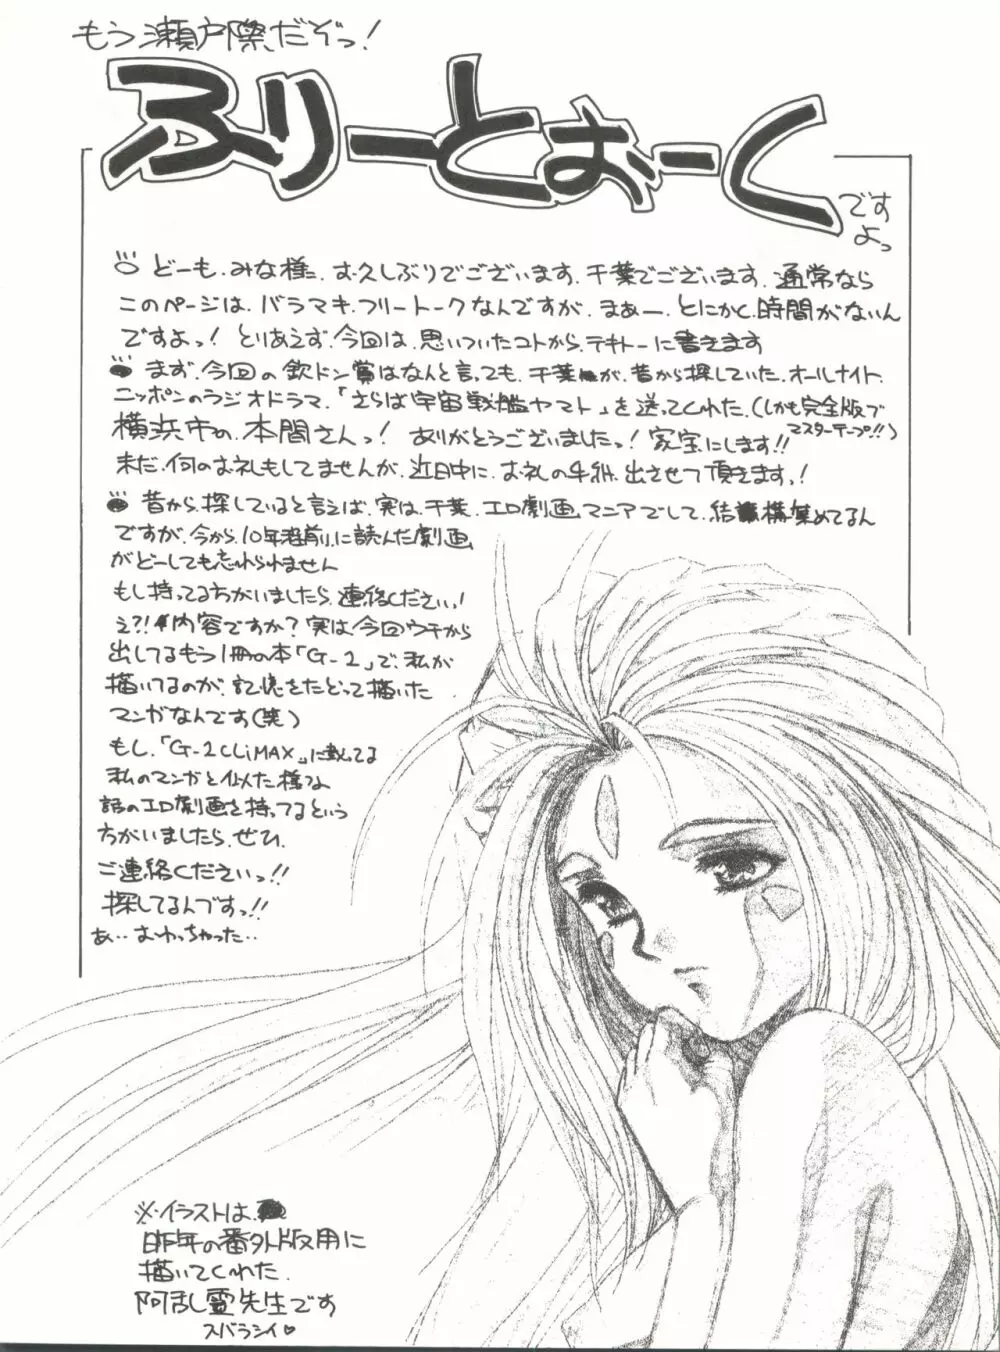 もう瀬戸際だぞっ!
ふりーとぉーく
ですよっ
どーも、みな様、お久しぶりでございます、千葉でございます、通常なら
このページは、バラマキ、フリートークなんですが、まぁー、とにかく、時間がないん
ですよっ! とりあえず、今回は、思いついたコトから、テキトーに書きます
まず、今回の欽ドン賞はなんと言っても、千葉が、昔から探していた、オールナイト、
ニッポンのラジオドラマ、「さらば宇宙戦艦ヤマト」を送ってくれた、(しかも完全版で
マスターテープ!!)
横浜市の、本間さんっ! ありがとうございましたっ! 家宝にします!!
未だ、何のお礼もしてませんが、近日中に、お礼の手紙、出させて頂きます!
昔から、探していると言えば、実は、千葉、エロ劇画マニアでして、結構集めてるん
ですが、今から、10年程前に読んだ劇画
がどーしても忘れられません
もし持ってる方がいましたら、連絡ください!
え?!内容ですか? 実は今回ウチから
出してるもう1冊の本「G-2」で、私が
描いてるのが、記憶をたどって描いた
マンガなんです(笑)
もし、「G-2 CLiMAX」に載ってる
私のマンガと似た様な
話のエロ劇画を持ってるという
方がいましたら、ぜひ、
ご連絡くださいっ!!
探してるんですっ!!
あ‥おわっちゃった‥
※イラストは、
昨年の番外版用に
描いてくれた、
阿乱霊先生です
スバラシイ♡